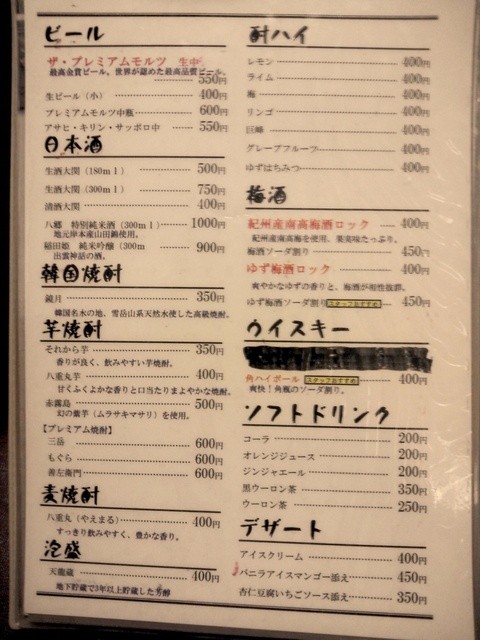 ビール
ザ・プレミアムモルツ 生中
最高金賞ビール。世界が認めた最高品質ビール。
550円
生ビール（小） 400円
プレミアムモルツ中瓶 600円
アサヒ・キリン・サッポロ中 550円
日本酒
生酒大関（180ｍｌ） 500円
生酒大関（300ｍｌ） 750円
清酒大関 400円
八郷 特別純米酒（300ｍｌ） 1000円
地元岸本産山田錦使用。
稲田姫 純米吟醸（300ｍ 900円
出雲神話の酒。
韓国焼酎
鏡月 350円
韓国名水の地、雪岳山系天然水使した高級焼酎。
芋焼酎
それから芋 350円
香りが良く、飲みやすい芋焼酎。
八重丸芋 400円
甘くふくよかな香りと口当たりまよやかな焼酎。
赤霧島 500円
幻の紫芋（ムラサキマサリ）を使用。
【プレミアム焼酎】
三岳 600円
もぐら 600円
善左衛門 600円
麦焼酎
八重丸（やえまる） 400円
すっきり飲みやすく、豊かな香り。
泡盛
天龍蔵 400円
地下貯蔵で3年以上貯蔵した芳醇
酎ハイ
レモン 400円
ライム 400円
梅 400円
リンゴ 400円
巨峰 400円
グレープフルーツ 400円
ゆずはちみつ 400円
梅酒
紀州産南高梅酒ロック 400円
紀州産南高梅を使用、果実味たっぷり。
梅酒ソーダ割り 450円
ゆず梅酒ロック 400円
爽やかなゆずの香りと、梅酒が相性抜群。
ゆず梅酒ソーダ割り スタッフおすすめ 450円
ウイスキー
角ハイボール スタッフおすすめ 400円
爽快！角瓶のソーダ割り。
ソフトドリンク
コーラ 200円
オレンジジュース 200円
ジンジャエール 200円
黒ウーロン茶 350円
ウーロン茶 250円
デザート
アイスクリーム 400円
バニラアイスマンゴー添え 450円
杏仁豆腐いちごソース添え 350円